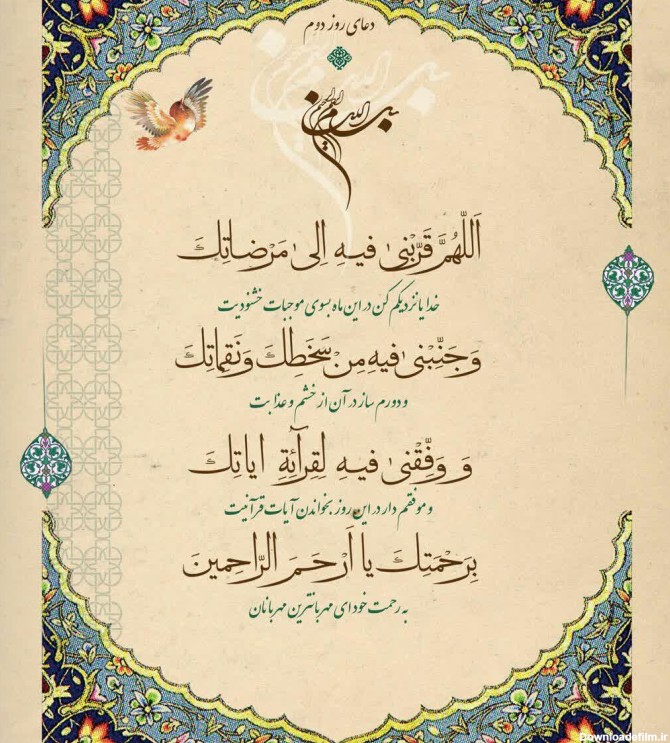 دعای روز دوم
بسم الله الرحمن الرحیم
اَللّهُمَّ قَرِّبْنی فیهِ اِلی مَرْضاتِكَ
خدایا نزدیکم کن در این ماه بسوی موجبات خشنودیت
وَ جَنِّبْنی فیهِ مِنْ سَخَطِكَ وَ نَقِماتِكَ
و دورم ساز در آن از خشم و عذابت
وَ وَفِّقْنی فیهِ لِقِرآئَةِ ایاتِكَ
و موفقم دار در این روز بخواندن آیات قرآنیت
بِرَحْمَتِكَ یا اَرْحَمَ الرّاحِمینَ
به رحمت خود ای مهربانترین مهربانان
Downloadefilm.ir